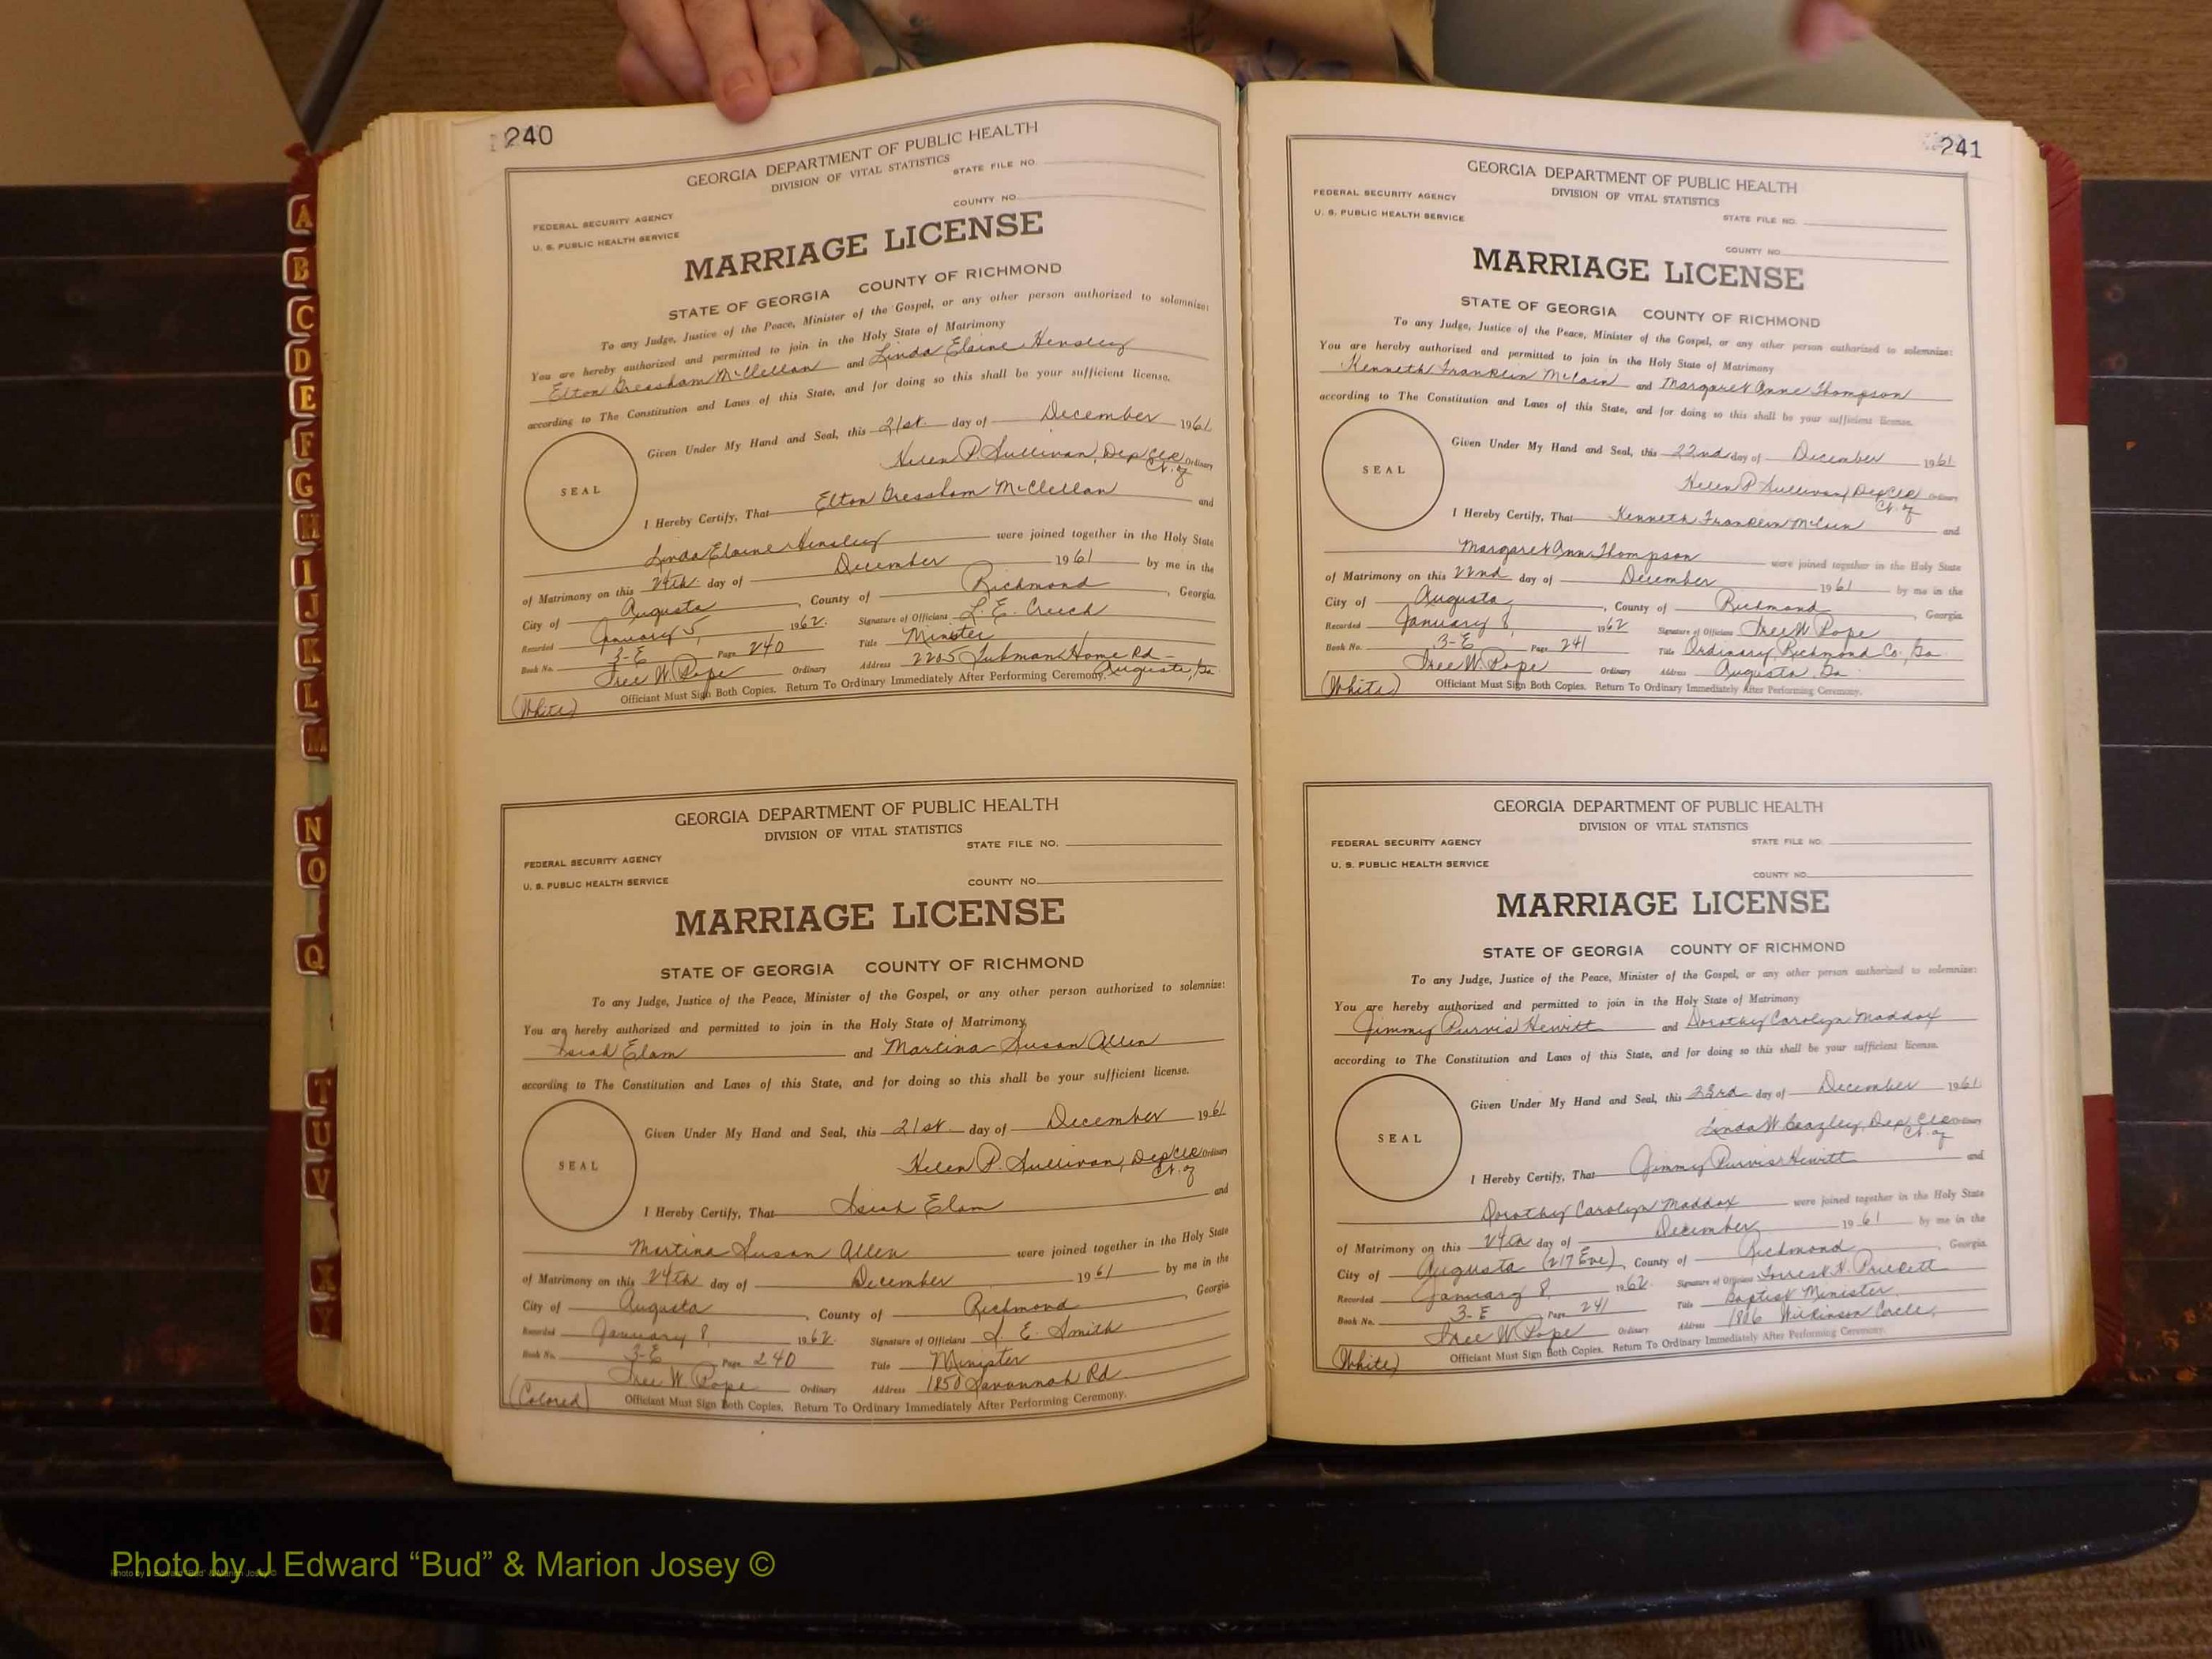 240
GEORGIA DEPARTMENT OF PUBLIC HEALTH
DIVISION OF VITAL STATISTICS
STATE FILE NO.
FEDERAL SECURITY AGENCY
COUNTY NO.
U. S. PUBLIC HEALTH SERVICE
MARRIAGE LICENSE
STATE OF GEORGIA COUNTY OF RICHMOND
To any Judge, Justice of the Peace, Minister of the Gospel, or any other person authorized to solemnize:
You are hereby authorized and permitted to join in the Holy State of Matrimony
Elton Gressham McClellan and Linda Elaine Hensley
according to The Constitution and Laws of this State, and for doing so this shall be your sufficient license.
Given Under My Hand and Seal, this 21st day of December 1961
Helen P. Sullivan, Dep Clk Ordinary
Ct. of
SEAL
I Hereby Certify, That Elton Gressham McClellan and
Linda Elaine Hensley were joined together in the Holy State
of Matrimony on this 24th day of December 1961 by me in the
City of Augusta, County of Richmond, Georgia.
Recorded January 5, 1962. Signature of Officiant L. E. Creech
Book No. 3-E Page 240 Title Minister
Tree W. Pope Ordinary Address 2205 Tubman Home Rd - Augusta, Ga
(White) Officiant Must Sign Both Copies. Return To Ordinary Immediately After Performing Ceremony.
GEORGIA DEPARTMENT OF PUBLIC HEALTH
DIVISION OF VITAL STATISTICS
STATE FILE NO.
FEDERAL SECURITY AGENCY
U. S. PUBLIC HEALTH SERVICE
COUNTY NO.
MARRIAGE LICENSE
STATE OF GEORGIA COUNTY OF RICHMOND
To any Judge, Justice of the Peace, Minister of the Gospel, or any other person authorized to solemnize:
You are hereby authorized and permitted to join in the Holy State of Matrimony
Isiah Elam and Martina Susan Allen
according to The Constitution and Laws of this State, and for doing so this shall be your sufficient license.
Given Under My Hand and Seal, this 21st day of December 1961
Helen P. Sullivan, Dep Clk Ordinary
Ct. of
SEAL
I Hereby Certify, That Isiah Elam and
Martina Susan Allen were joined together in the Holy State
of Matrimony on this 24th day of December 1961 by me in the
City of Augusta, County of Richmond, Georgia
Recorded January 8, 1962. Signature of Officiant S. E. Smith
Book No. 3-E Page 240 Title Minister
Tree W. Pope Ordinary Address 1850 Savannah Rd.
(Colored) Officiant Must Sign Both Copies. Return To Ordinary Immediately After Performing Ceremony.
241
GEORGIA DEPARTMENT OF PUBLIC HEALTH
DIVISION OF VITAL STATISTICS
FEDERAL SECURITY AGENCY
U. S. PUBLIC HEALTH SERVICE
STATE FILE NO.
COUNTY NO.
MARRIAGE LICENSE
STATE OF GEORGIA COUNTY OF RICHMOND
To any Judge, Justice of the Peace, Minister of the Gospel, or any other person authorized to solemnize:
You are hereby authorized and permitted to join in the Holy State of Matrimony
Kenneth Franklin McLain and Margaret Anne Thompson
according to The Constitution and Laws of this State, and for doing so this shall be your sufficient license.
Given Under My Hand and Seal, this 22nd day of December 1961
Helen P Sullivan, Dep Clk Ordinary
Ct. of
SEAL
I Hereby Certify, That Kenneth Franklin McLain and
Margaret Ann Thompson were joined together in the Holy State
of Matrimony on this 22nd day of December 1961 by me in the
City of Augusta, County of Richmond, Georgia
Recorded January 8, 1962 Signature of Officiant Tree W. Pope
Book No. 3-E Page 241 Title Ordinary, Richmond Co., Ga
Tree W. Pope Ordinary Address Augusta, Ga.
(White) Officiant Must Sign Both Copies. Return To Ordinary Immediately After Performing Ceremony.
GEORGIA DEPARTMENT OF PUBLIC HEALTH
DIVISION OF VITAL STATISTICS
FEDERAL SECURITY AGENCY
STATE FILE NO.
U. S. PUBLIC HEALTH SERVICE
COUNTY NO.
MARRIAGE LICENSE
STATE OF GEORGIA COUNTY OF RICHMOND
To any Judge, Justice of the Peace, Minister of the Gospel, or any other person authorized to solemnize:
You are hereby authorized and permitted to join in the Holy State of Matrimony
Jimmy Purvis Hewitt and Dorothy Carolyn Maddox
according to The Constitution and Laws of this State, and for doing so this shall be your sufficient license.
Given Under My Hand and Seal, this 23rd day of December 1961
Linda W Beazley, Dep Clk Ordinary
Ct. of
SEAL
I Hereby Certify, That Jimmy Purvis Hewitt and
Dorothy Carolyn Maddox were joined together in the Holy State
of Matrimony on this 24th day of December 1961 by me in the
City of Augusta (217 Eve), County of Richmond, Georgia
Recorded January 8, 1962. Signature of Officiant Forrest H. Prickett
Book No. 3-E Page 241 Title Baptist Minister
Tree W. Pope Ordinary Address 1806 Wilkinson Circle,
(White) Officiant Must Sign Both Copies. Return To Ordinary Immediately After Performing Ceremony.
A
B
C
D
E
F
G
H
I
J
K
L
M
N
O
Q
T
U
V
X
Y
Photo by J Edward “Bud” & Marion Josey ©
Photo by J Edward “Bud” & Marion Josey ©